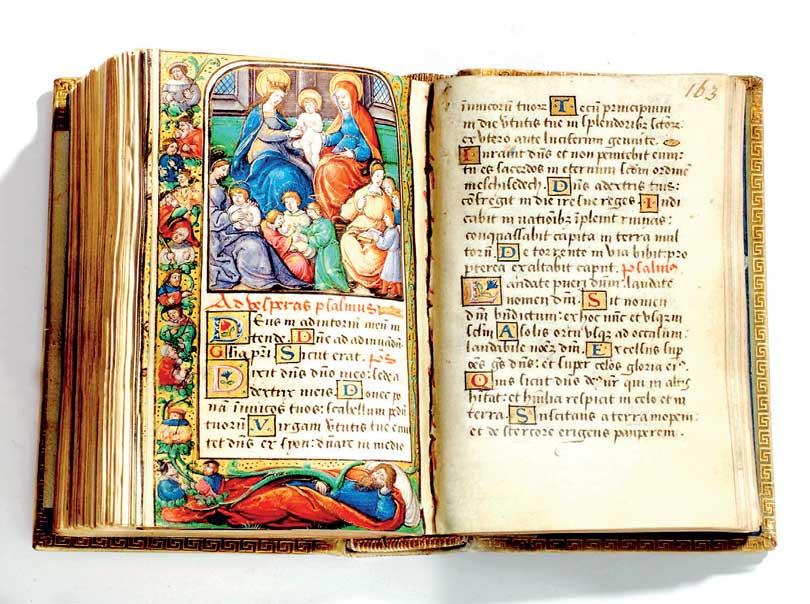 Ad vesperas psalmus
Deus in adiutoriū meū in
tende. Dñe ad adiuvādū
Glīa pr̄i. Sicut erat. ps̄
Dixit dn̄s dn̄o meo: sede a
dextris meis. Donec po
nā inimicos tuos: scabellum pedū
tuorū. Virgam v̄tutis tue emi
tet dn̄s ex syon: dn̄are in medio
163
inimicorū tuor. Tecū principium
in die v̄tutis tue in splendoribꝫ sc̄tor:
ex utero ante luciferum genui te.
Iuravit dn̄s et non penitebit eum:
tu es sacerdos in eternum sc̄dm ordinē
melchisedech. Dn̄s a dextris tuis:
cōfregit in die ire sue reges. Iudi
cabit in natiōibꝫ: īplevit ruinas:
conquassabit capita in terra mul
torū. De torrente in via bibit: pro
pterea exaltabit caput. psalmus
Laudate pueri dn̄m: laudate
nomen dn̄i. Sit nomen
dn̄i bn̄dictum: ex hoc nūc et usqꝫ in
sc̄lm. A solis ortu usqꝫ ad occasum:
laudabile nōe dn̄i. Excelsus sup
ōēs gēs dn̄s: et super celos gloria eiꝰ.
Quis sicut dn̄s deꝰ nr̄ qui in altis
hītat: et hūilia respicit in celo et in
terra. Suscitans a terra inopem:
et de stercore erigens pauperem.